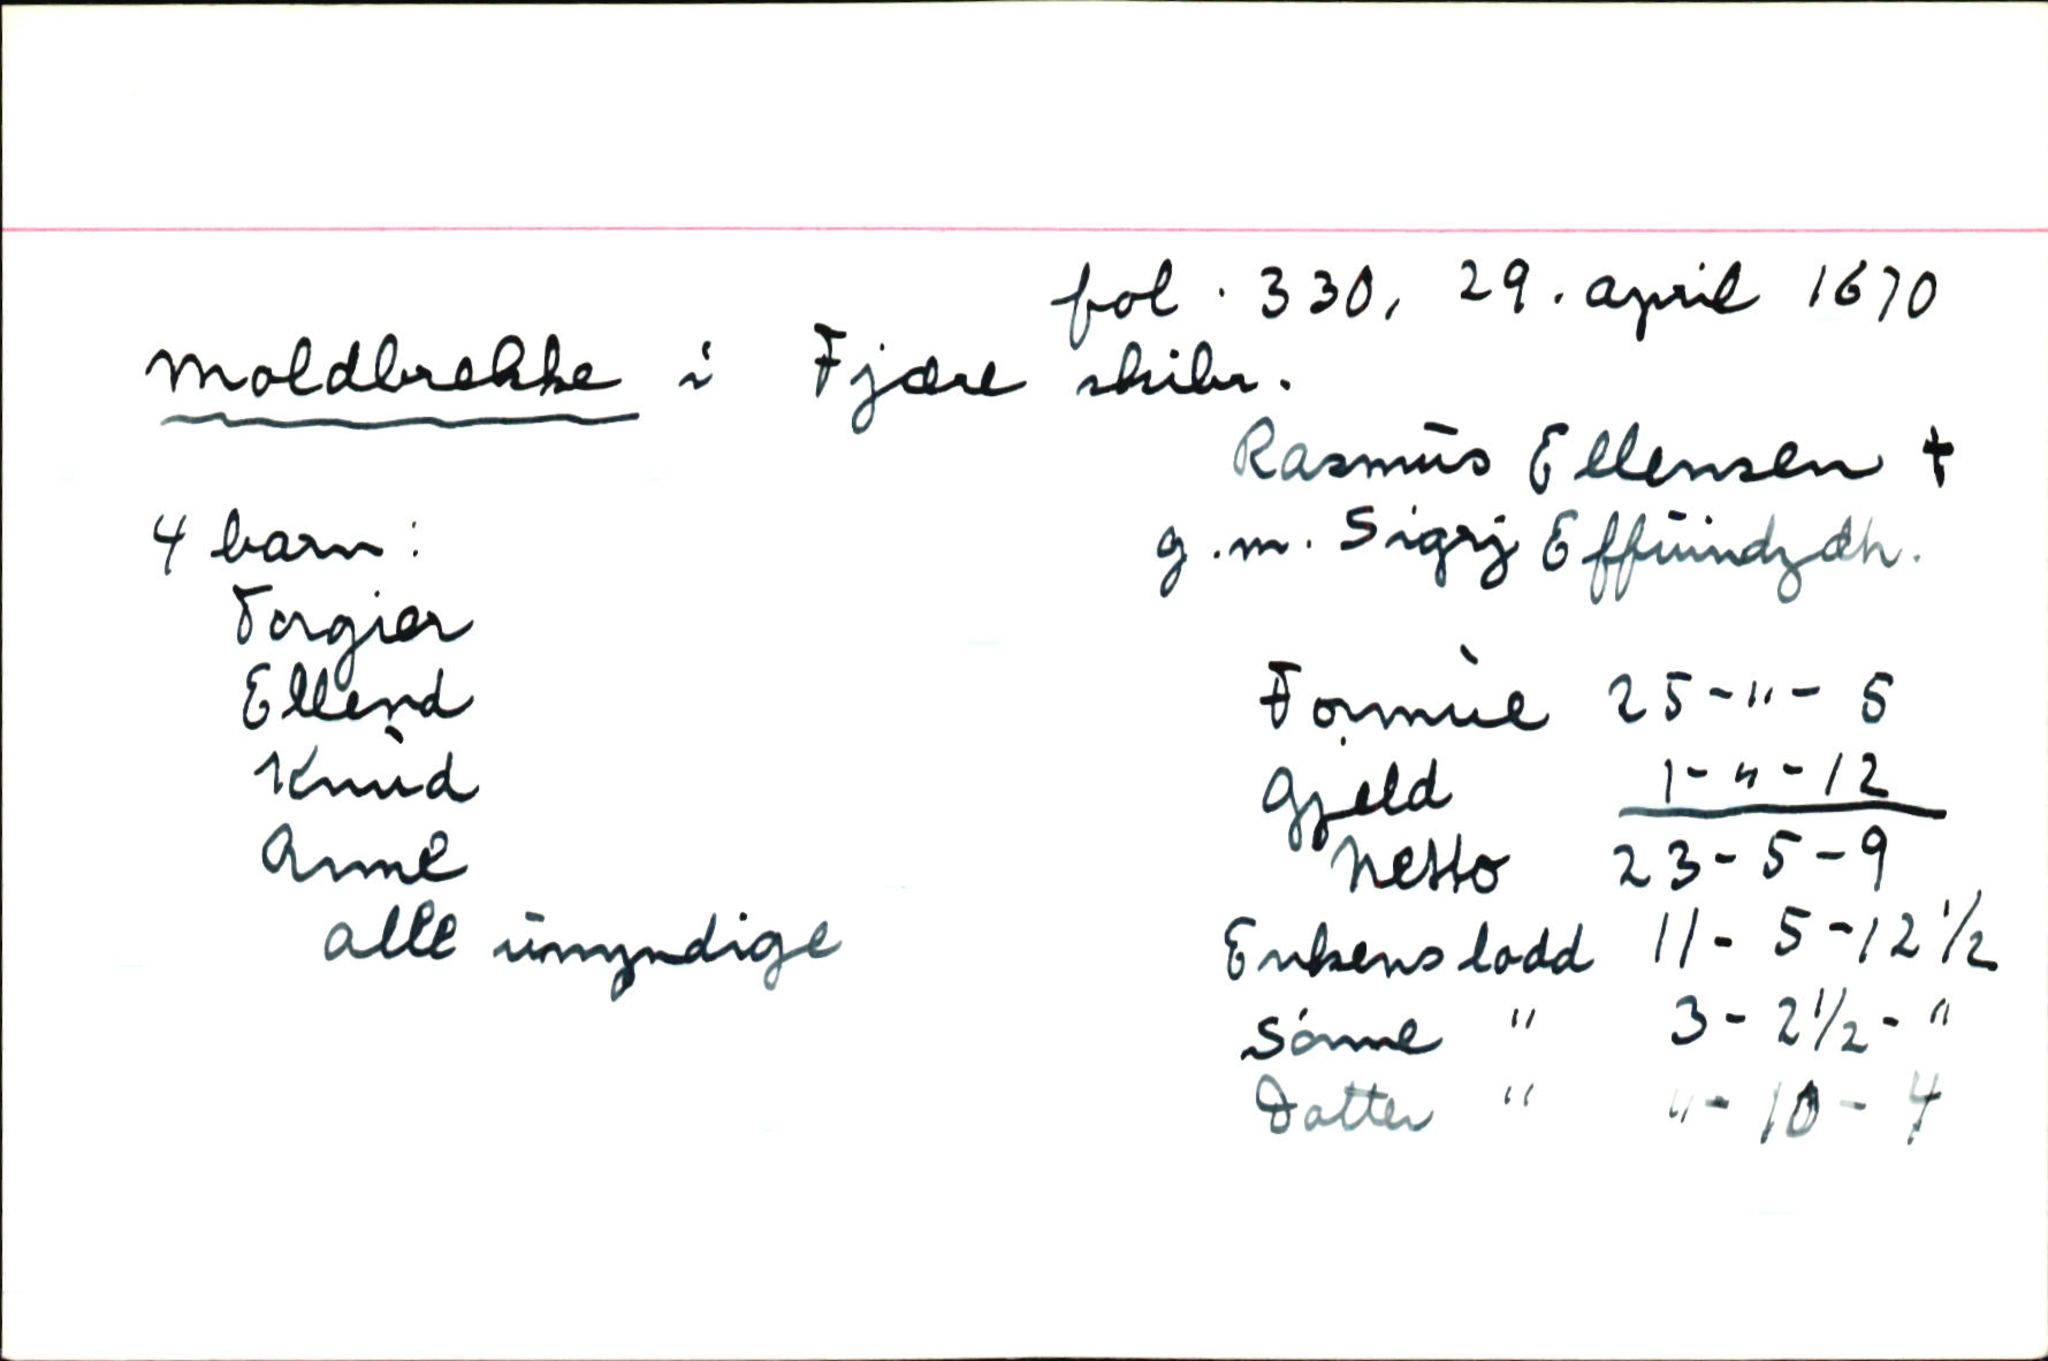 fol. 330, 29. april 1670
Moldbrekke i Fjære skibr.
Rasmus Ellensen †
g.m. Sigrj Effuindzdtr.
4 barn:
Torgier
Ellend
Knud
Anne
alle umyndige
Formue 25-"-5
Gjeld 1-"-12
Netto 23-5-9
Enkens lodd 11-5-12 1/2
Sønne " 3-2 1/2-"
Datter " "-10-4